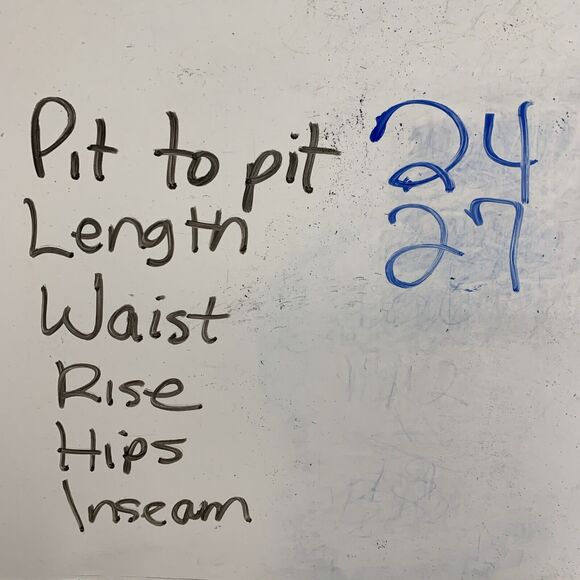 Pit to pit 24
Length 27
Waist
Rise
Hips
Inseam